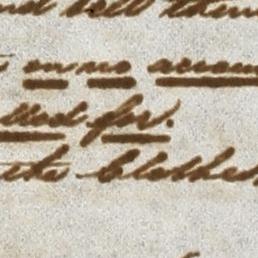 and tell them
on no accoun
lled for.
the clothes